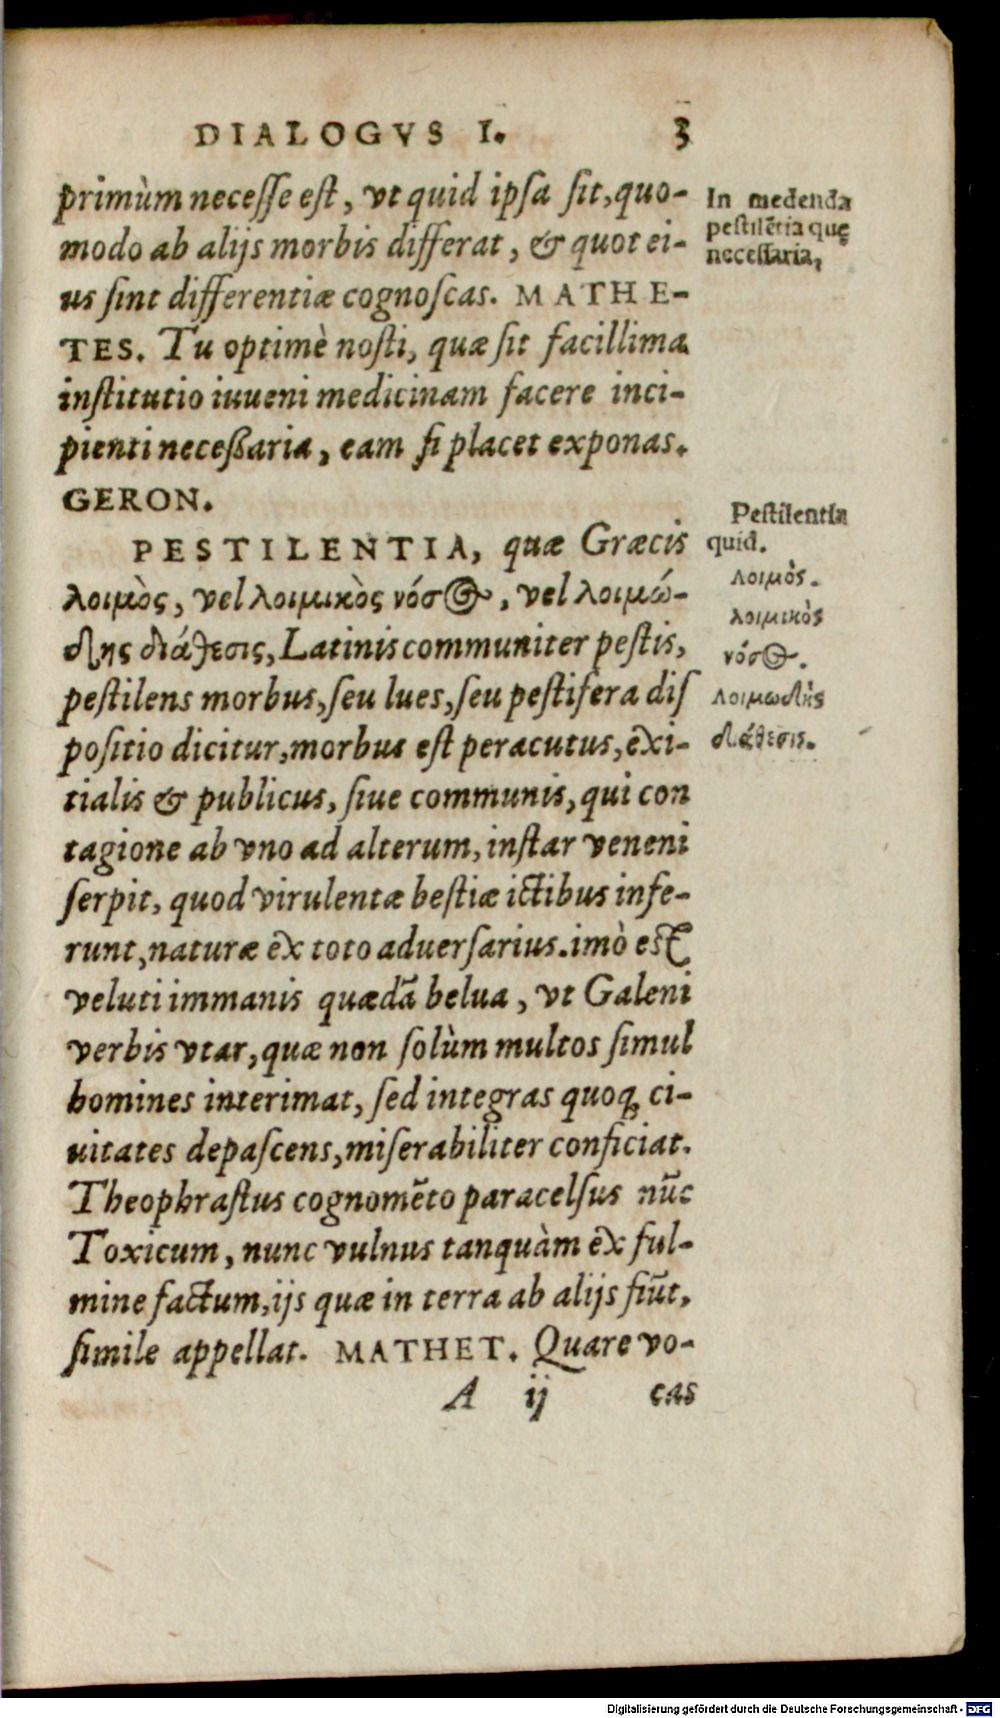 DIALOGVS I. 3
primùm necesse est, vt quid ipsa sit, quo-
modo ab alijs morbis differat, & quot ei-
us sint differentiæ cognoscas. MATHE-
TES. Tu optimè nosti, quæ sit facillima
institutio iuueni medicinam facere inci-
pienti necessaria, eam si placet exponas.
GERON.
PESTILENTIA, quæ Græcis
λοιμὸς, vel λοιμικὸς νόσος, vel λοιμώ-
δης διάθεσις, Latinis communiter pestis,
pestilens morbus, seu lues, seu pestifera dis
positio dicitur, morbus est peracutus, exi-
tialis & publicus, siue communis, qui con
tagione ab vno ad alterum, instar veneni
serpit, quod virulentæ bestiæ ictibus infe-
runt, naturæ ex toto aduersarius. imò est
veluti immanis quædā belua, vt Galeni
verbis vtar, quæ non solùm multos simul
homines interimat, sed integras quoq; ci-
uitates depascens, miserabiliter conficiat.
Theophrastus cognomēto paracelsus nūc
Toxicum, nunc vulnus tanquàm ex ful-
mine factum, ijs quæ in terra ab alijs fiūt,
simile appellat. MATHET. Quare vo-
A ij cas
In medenda
pestilētia quę
necessaria,
Pestilentia
quid.
λοιμὸς.
λοιμικὸς
νόσος.
λοιμωδὴς
διάθεσις.
Digitalisierung gefördert durch die Deutsche Forschungsgemeinschaft - DFG